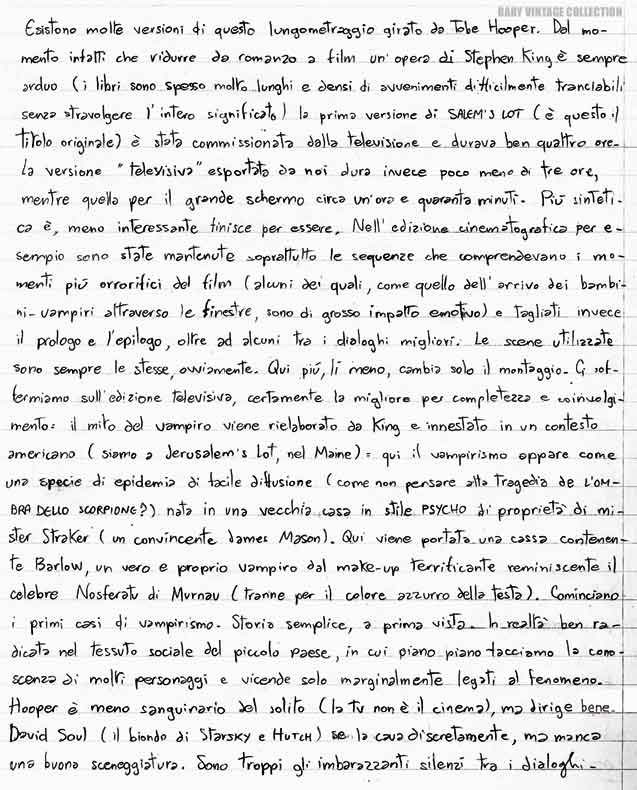 BABY VINTAGE COLLECTION
Esistono molte versioni di questo lungometraggio girato da Tobe Hooper. Dal mo-
mento infatti che ridurre da romanzo a film un'opera di Stephen King è sempre
arduo (i libri sono spesso molto lunghi e densi di avvenimenti difficilmente tranciabili
senza stravolgere l'intero significato) la prima versione di SALEM'S LOT (è questo il
titolo originale) è stata commissionata dalla televisione e durava ben quattro ore.
La versione "televisiva" esportata da noi dura invece poco meno di tre ore,
mentre quella per il grande schermo circa un'ora e quaranta minuti. Più sinteti-
ca è, meno interessante finisce per essere. Nell'edizione cinematografica per e-
sempio sono state mantenute soprattutto le sequenze che comprendevano i mo-
menti più orrorifici del film (alcuni dei quali, come quello dell'arrivo dei bambi-
ni-vampiri attraverso le finestre, sono di grosso impatto emotivo) e tagliati invece
il prologo e l'epilogo, oltre ad alcuni tra i dialoghi migliori. Le scene utilizzate
sono sempre le stesse, ovviamente. Qui più, lì meno, cambia solo il montaggio. Ci sof-
fermiamo sull'edizione televisiva, certamente la migliore per completezza e coinvolgi-
mento: il mito del vampiro viene rielaborato da King e innestato in un contesto
americano (siamo a Jerusalem's Lot, nel Maine): qui il vampirismo appare come
una specie di epidemia di facile diffusione (come non pensare alla tragedia de L'OM-
BRA DELLO SCORPIONE?) nata in una vecchia casa in stile PSYCHO di proprietà di mi-
ster Straker (un convincente James Mason). Qui viene portata una cassa contenen-
te Barlow, un vero e proprio vampiro dal make-up terrificante reminiscente il
celebre Nosferatu di Murnau (tranne per il colore azzurro della testa). Cominciano
i primi casi di vampirismo. Storia semplice, a prima vista. In realtà ben ra-
dicata nel tessuto sociale del piccolo paese, in cui piano piano facciamo la cono-
scenza di molti personaggi e vicende solo marginalmente legati al fenomeno.
Hooper è meno sanguinario del solito (la tv non è il cinema), ma dirige bene.
David Soul (il biondo di STARSKY e HUTCH) se la cava discretamente, ma manca
una buona sceneggiatura. Sono troppi gli imbarazzanti silenzi tra i dialoghi.